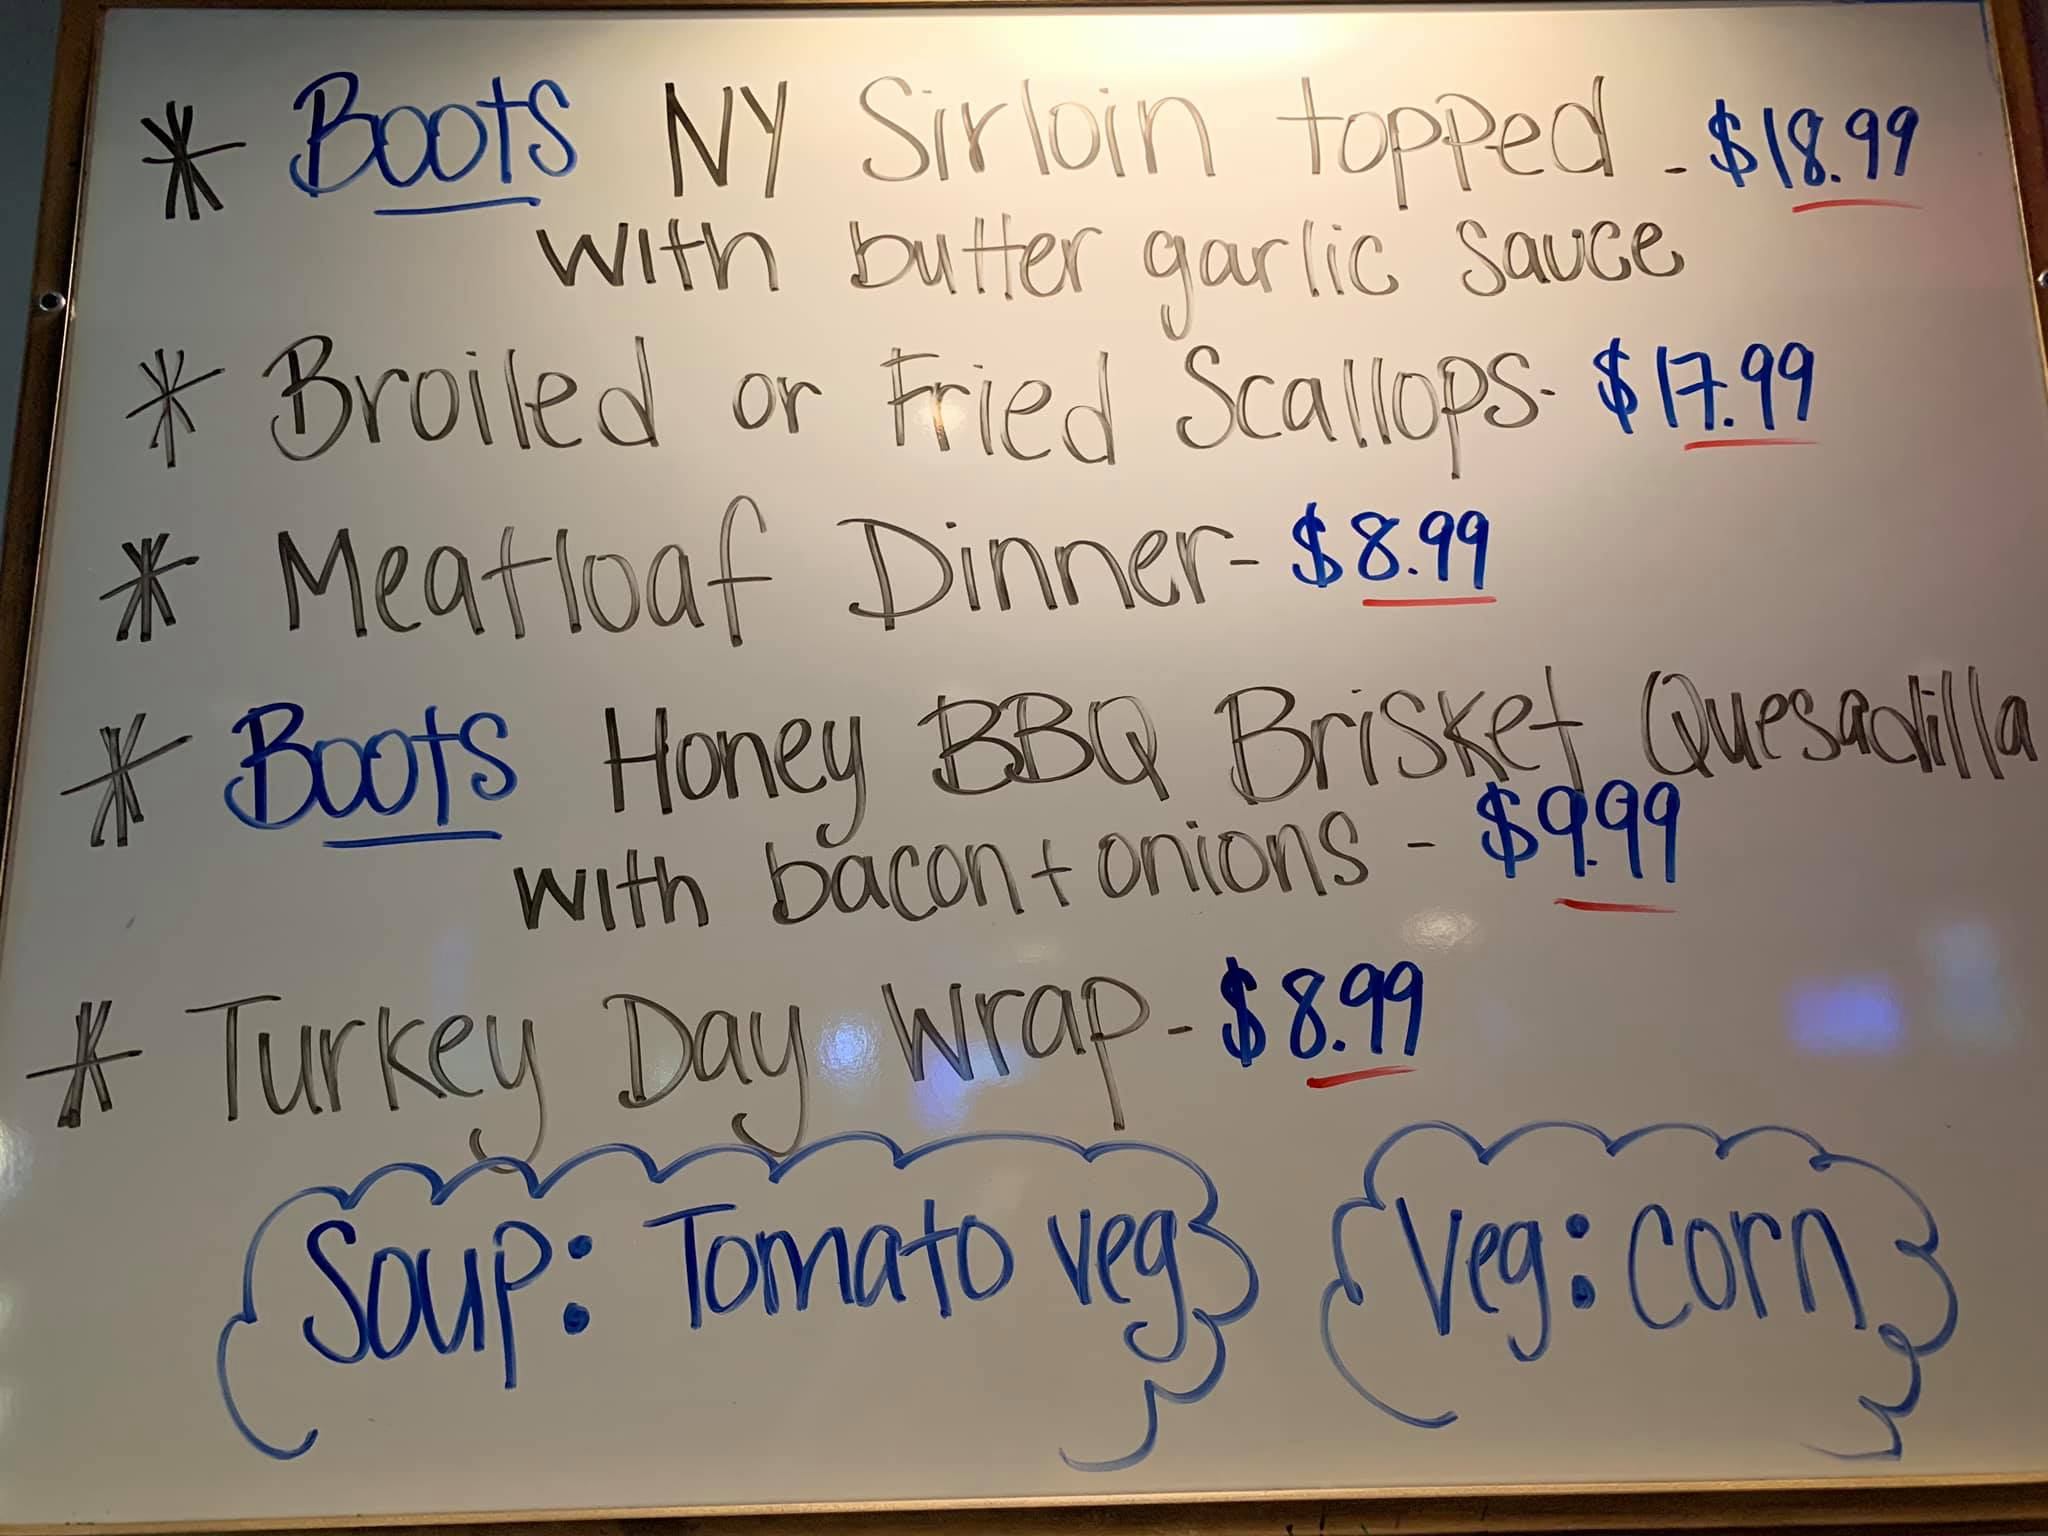 * Boots NY Sirloin topped - $18.99
with butter garlic sauce
* Broiled or Fried Scallops - $17.99
* Meatloaf Dinner - $8.99
* Boots Honey BBQ Brisket Quesadilla
with bacon + onions - $9.99
* Turkey Day Wrap - $8.99
Soup: Tomato veg
Veg: corn